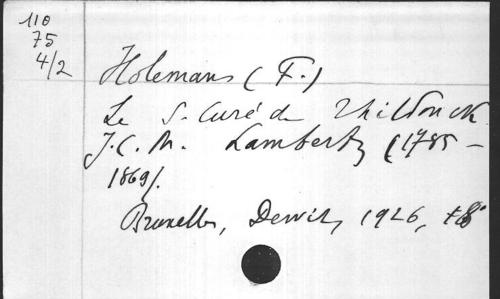 110
75
4/2
Holemans (F.)
Le S. Curé de Thildonck
J.C.M. Lambertz (1785 –
1869).
Bruxelles, Dewit, 1926, 8°